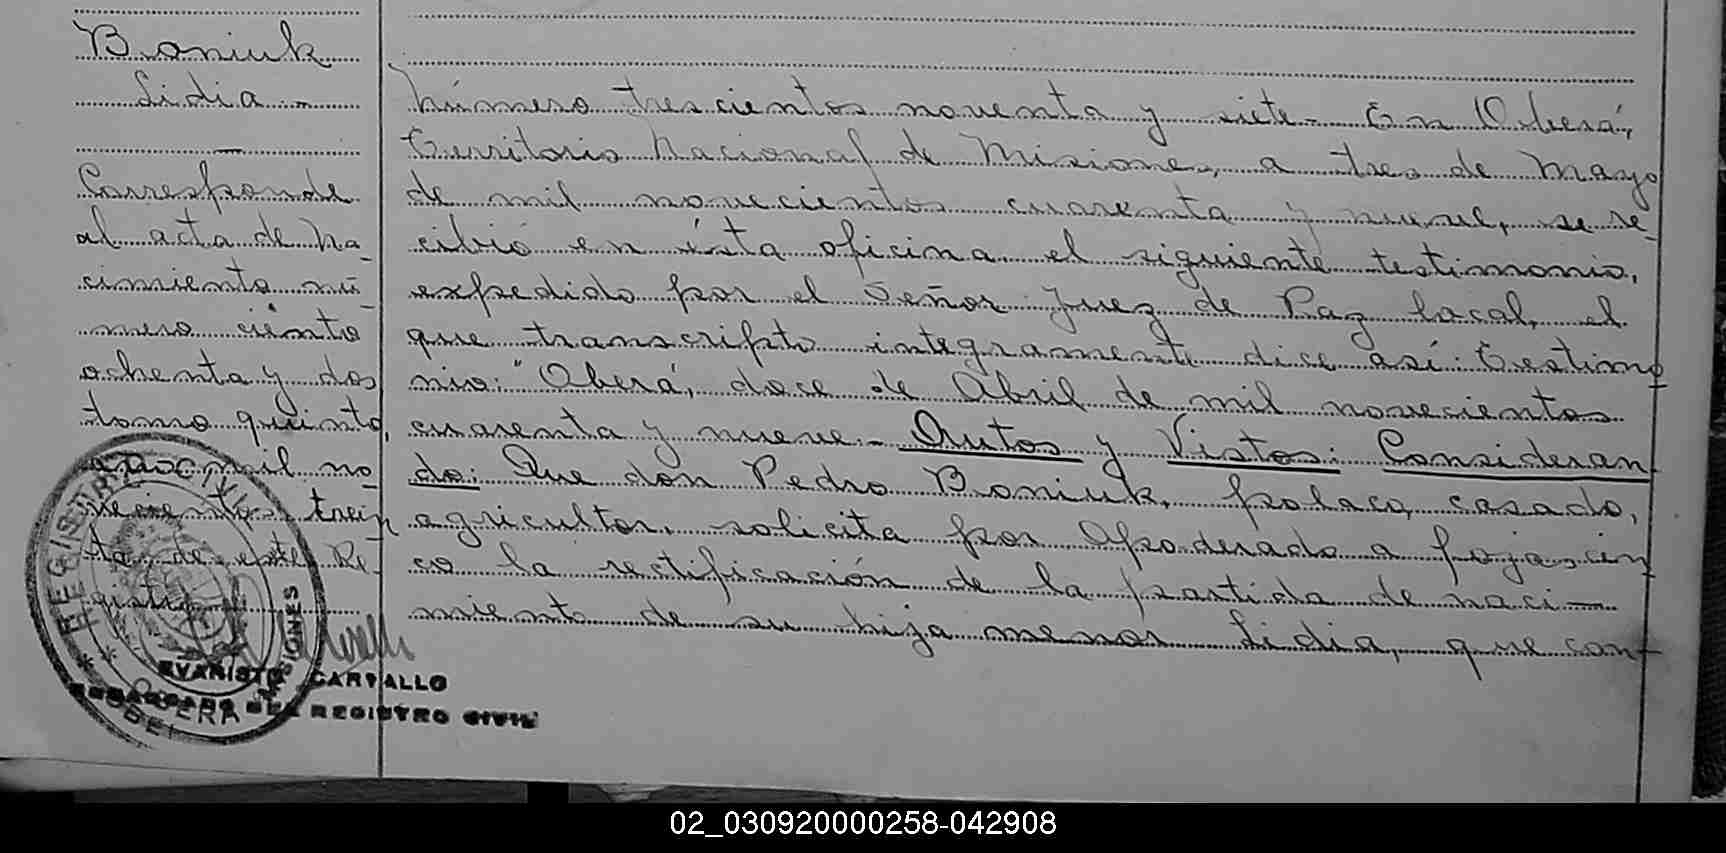 Boniuk
Lidia.-
Corresponde
al acta de Na-
cimiento nú-
mero ciento
ochenta y dos
tomo quinto,
año mil no-
vecientos trein
ta, de este Re-
gistro
Número trescientos noventa y siete.- En Oberá,
Territorio Nacional de Misiones, a tres de Mayo
de mil novecientos cuarenta y nueve, se re-
cibió en ésta oficina el siguiente testimonio,
expedido por el Señor Juez de Paz local, el
que transcripto integramente dice así: Testimo
nio: "Oberá, doce de Abril de mil novecientos
cuarenta y nueve.- Autos y Vistos: Consideran-
do: Que don Pedro Boniuk, polaco, casado,
agricultor, solicita por Apoderado a fojas cin
co la rectificación de la partida de naci-
miento de su hija menor Lidia, que con-
REGISTRO CIVIL
MISIONES
OBERA
EVARISTO CARVALLO
ENCARGADO DEL REGISTRO CIVIL
02_030920000258-042908